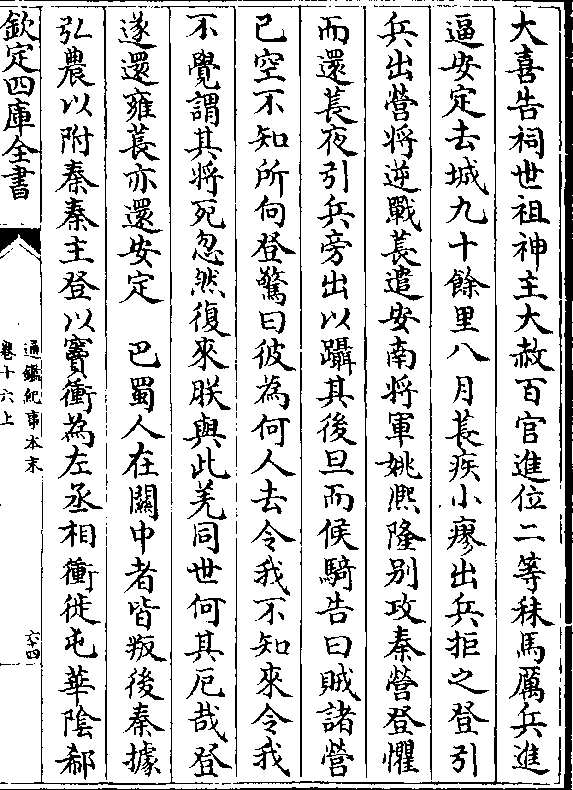 大喜告祠世祖神主大赦百官進位二等秣馬厲兵進
逼安定去城九十餘里八月萇疾小瘳出兵拒之登引
兵出營将逆戰萇遣安南将軍姚熈隆别攻秦營登懼
而還萇夜引兵旁出以躡其後旦而候騎告曰賊諸營
已空不知所向登驚曰彼為何人去令我不知來令我
不覺謂其将死忽然復來朕與此羌同世何其厄哉登
遂還雍萇亦還安定　巴蜀人在關中者皆叛後秦據
弘農以附秦秦主登以竇衝為左丞相衝徙屯華陰郗
欽定四庫全書
通鑑紀事本末
卷十六上
六十四